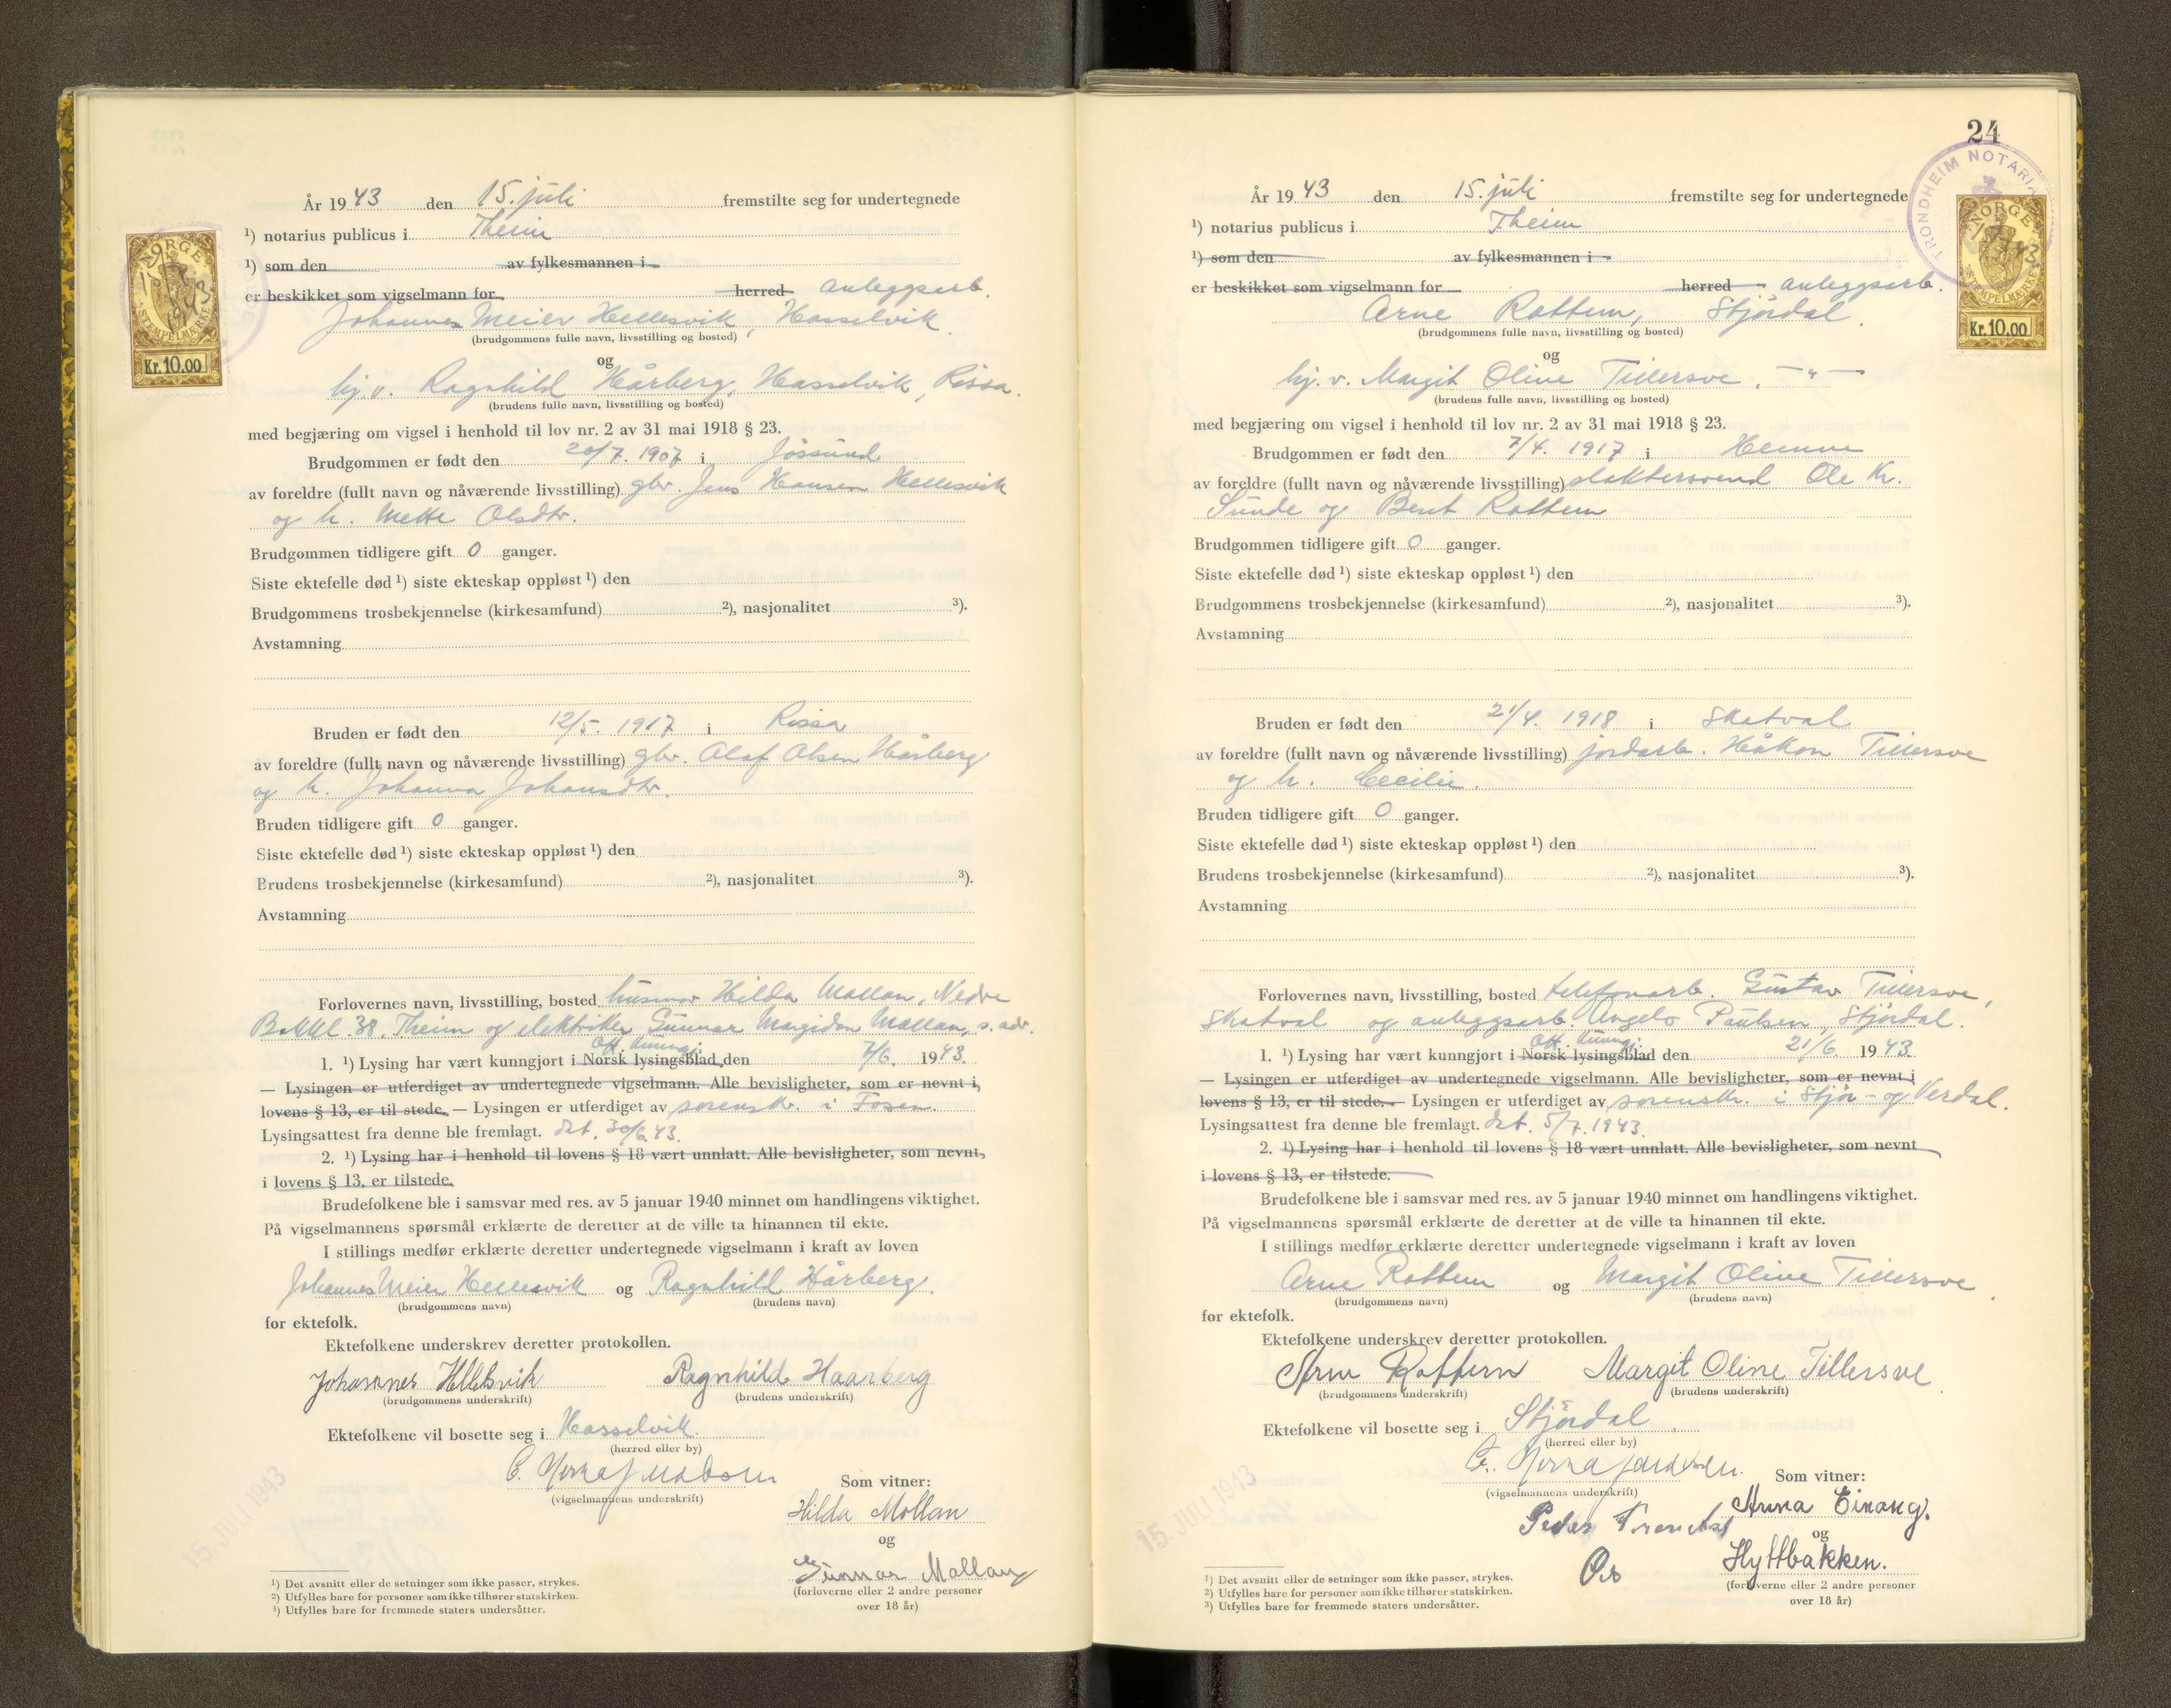 År 1943 den 15. juli fremstilte seg for undertegnede
¹) notarius publicus i Theim
¹) som den av fylkesmannen i
er beskikket som vigselmann for herred anleggsarb.
Johannes Meier Hellesvik, Hasselvik.
(brudgommens fulle navn, livsstilling og bosted)
og
hj. v. Ragnhild Hårberg, Hasselvik, Rissa.
(brudens fulle navn, livsstilling og bosted)
med begjæring om vigsel i henhold til lov nr. 2 av 31 mai 1918 § 23.
Brudgommen er født den 20/7. 1907 i Jössund
av foreldre (fullt navn og nåværende livsstilling) gbr. Jens Hansen Hellesvik
og h. Mette Olsdtr.
Brudgommen tidligere gift 0 ganger.
Siste ektefelle død ¹) siste ekteskap oppløst ¹) den
Brudgommens trosbekjennelse (kirkesamfund) ²), nasjonalitet ³).
Avstamning
Bruden er født den 12/5. 1917 i Rissa
av foreldre (fullt navn og nåværende livsstilling) gbr. Olaf Olsen Hårberg
og h. Johanna Johansdtr.
Bruden tidligere gift 0 ganger.
Siste ektefelle død ¹) siste ekteskap oppløst ¹) den
Brudens trosbekjennelse (kirkesamfund) ²), nasjonalitet ³).
Avstamning
Forlovernes navn, livsstilling, bosted husmor Hilda Mollan, Nedre
Bakkl. 38, Theim og elektriker Gunnar Margidon Mollan, s. adr.
Off. kunngj.
1. ¹) Lysing har vært kunngjort i Norsk lysingsblad den 7/6. 1943.
— Lysingen er utferdiget av undertegnede vigselmann. Alle bevisligheter, som er nevnt i
lovens § 13, er til stede. — Lysingen er utferdiget av sorenskr. i Fosen.
Lysingsattest fra denne ble fremlagt. dat. 30/6 43.
2. ¹) Lysing har i henhold til lovens § 18 vært unnlatt. Alle bevisligheter, som nevnt
i lovens § 13, er tilstede.
Brudefolkene ble i samsvar med res. av 5 januar 1940 minnet om handlingens viktighet.
På vigselmannens spørsmål erklærte de deretter at de ville ta hinannen til ekte.
I stillings medfør erklærte deretter undertegnede vigselmann i kraft av loven
Johannes Meier Hellesvik og Ragnhild Hårberg.
(brudgommens navn) (brudens navn)
for ektefolk.
Ektefolkene underskrev deretter protokollen.
Johannes Hellesvik Ragnhild Haarberg
(brudgommens underskrift) (brudens underskrift)
Ektefolkene vil bosette seg i Hasselvik.
(herred eller by)
(vigselmannens underskrift)
Som vitner:
Hilda Mollan
og
Gunnar Mollan
(forloverne eller 2 andre personer
over 18 år)
15. JULI 1943
¹) Det avsnitt eller de setninger som ikke passer, strykes.
²) Utfylles bare for personer som ikke tilhører statskirken.
³) Utfylles bare for fremmede staters undersåtter.
NORGE
STEMPELMERKE
Kr. 10.00
24
TRONDHEIM NOTARIA
NORGE
STEMPELMERKE
Kr. 10.00
År 1943 den 15. juli fremstilte seg for undertegnede
¹) notarius publicus i Theim
¹) som den av fylkesmannen i
er beskikket som vigselmann for herred anleggsarb.
Arne Rottem, Stjördal.
(brudgommens fulle navn, livsstilling og bosted)
og
hj. v. Margit Oline Tillersve, — " —
(brudens fulle navn, livsstilling og bosted)
med begjæring om vigsel i henhold til lov nr. 2 av 31 mai 1918 § 23.
Brudgommen er født den 7/4. 1917 i Hemne
av foreldre (fullt navn og nåværende livsstilling) slaktersvend Ole Kr.
Sunde og Berit Rottem
Brudgommen tidligere gift 0 ganger.
Siste ektefelle død ¹) siste ekteskap oppløst ¹) den
Brudgommens trosbekjennelse (kirkesamfund) ²), nasjonalitet ³).
Avstamning
Bruden er født den 21/4. 1918 i Skatval
av foreldre (fullt navn og nåværende livsstilling) jordarb. Håkon Tillersve
og h. Cecilie.
Bruden tidligere gift 0 ganger.
Siste ektefelle død ¹) siste ekteskap oppløst ¹) den
Brudens trosbekjennelse (kirkesamfund) ²), nasjonalitet ³).
Avstamning
Forlovernes navn, livsstilling, bosted telefonarb. Gustav Tillersve,
Skatval og anleggsarb. Angelo Paulsen, Stjördal.
Off. kunngj.
1. ¹) Lysing har vært kunngjort i Norsk lysingsblad den 21/6. 1943.
— Lysingen er utferdiget av undertegnede vigselmann. Alle bevisligheter, som er nevnt i
lovens § 13, er til stede. — Lysingen er utferdiget av sorenskr. i Stjör- og Verdal.
Lysingsattest fra denne ble fremlagt. dat. 5/7. 1943.
2. ¹) Lysing har i henhold til lovens § 18 vært unnlatt. Alle bevisligheter, som nevnt
i lovens § 13, er tilstede.
Brudefolkene ble i samsvar med res. av 5 januar 1940 minnet om handlingens viktighet.
På vigselmannens spørsmål erklærte de deretter at de ville ta hinannen til ekte.
I stillings medfør erklærte deretter undertegnede vigselmann i kraft av loven
Arne Rottem og Margit Oline Tillersve.
(brudgommens navn) (brudens navn)
for ektefolk.
Ektefolkene underskrev deretter protokollen.
Arne Rottem Margit Oline Tillersve
(brudgommens underskrift) (brudens underskrift)
Ektefolkene vil bosette seg i Stjördal
(herred eller by)
(vigselmannens underskrift)
Som vitner:
Anna Einang.
og
Hyttbakken.
(forloverne eller 2 andre personer
over 18 år)
15. JULI 1943
¹) Det avsnitt eller de setninger som ikke passer, strykes.
²) Utfylles bare for personer som ikke tilhører statskirken.
³) Utfylles bare for fremmede staters undersåtter.